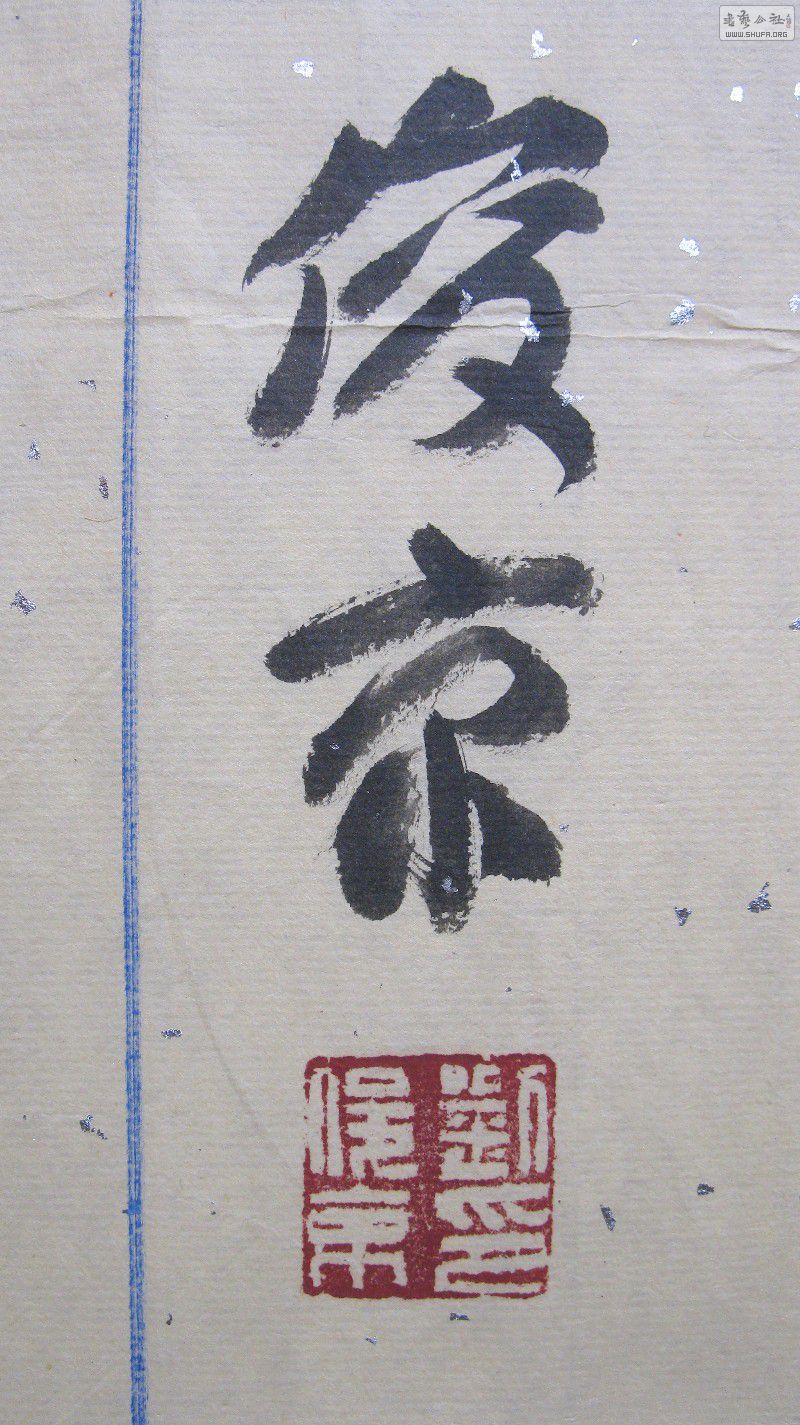 俊京
劉印
俊京
書藝公社
WWW.SHUFA.ORG